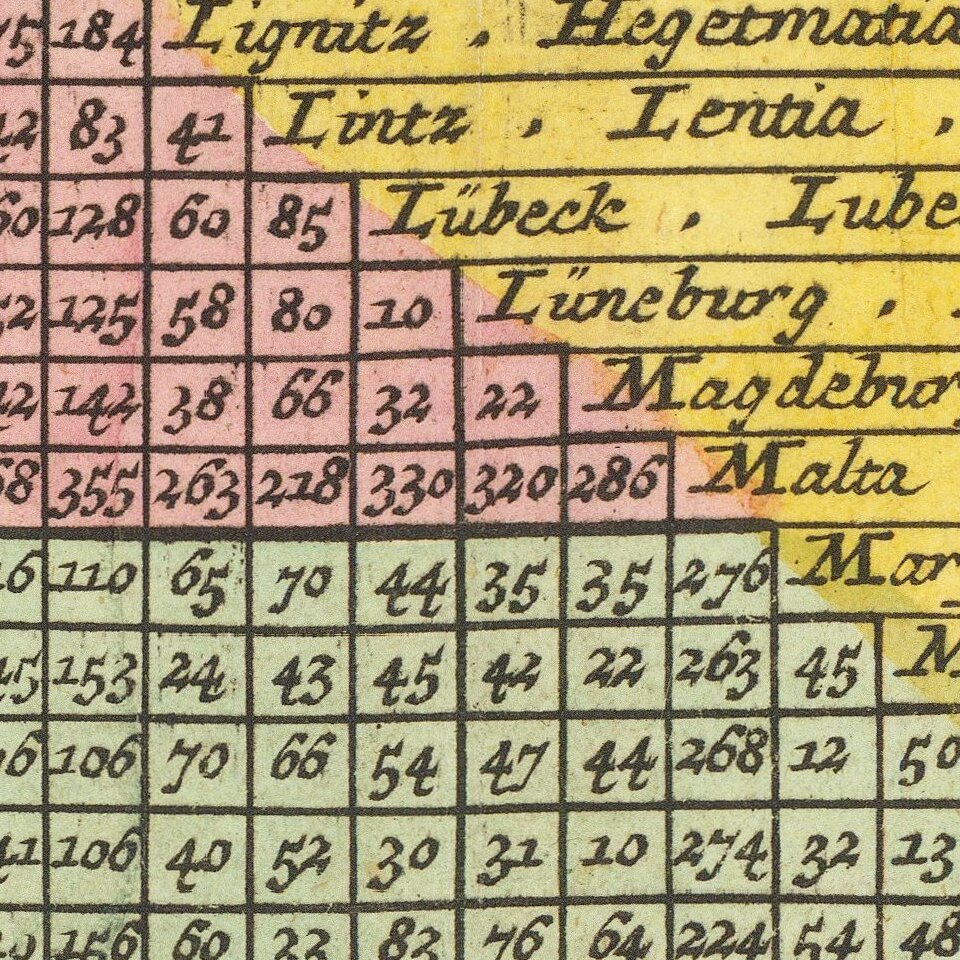 184 Lignitz . Hegetmatia
83 41 Lintz . Lentia .
128 60 85 Lübeck . Lube
125 58 80 10 Lüneburg .
142 38 66 32 22 Magdebur
355 263 218 330 320 286 Malta
110 65 70 44 35 35 276 Mar
153 24 43 45 42 22 263 45 M
106 70 66 54 47 44 268 12 50
106 40 52 30 31 10 274 32 13
156 60 76 64 224 54 48